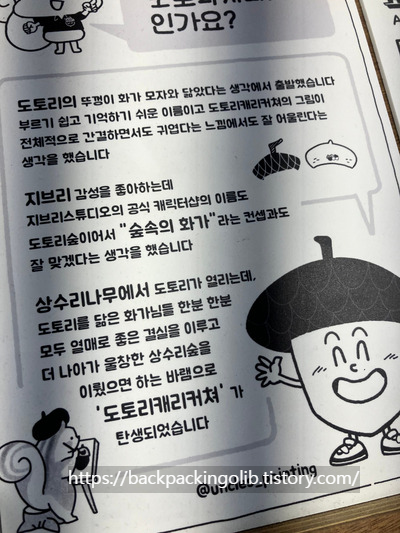 인가요?
도토리의 뚜껑이 화가 모자와 닮았다는 생각에서 출발했습니다
부르기 쉽고 기억하기 쉬운 이름이고 도토리캐리커쳐의 그림이
전체적으로 간결하면서도 귀엽다는 느낌에서도 잘 어울린다는
생각을 했습니다
지브리 감성을 좋아하는데
지브리스튜디오의 공식 캐릭터샵의 이름도
도토리숲이어서 "숲속의 화가"라는 컨셉과도
잘 맞겠다는 생각을 했습니다
상수리나무에서 도토리가 열리는데,
도토리를 닮은 화가님들 한분 한분
모두 열매로 좋은 결실을 이루고
더 나아가 울창한 상수리숲을
이뤘으면 하는 바램으로
'도토리캐리커쳐' 가
탄생되었습니다
https://backpackingolib.tistory.com/